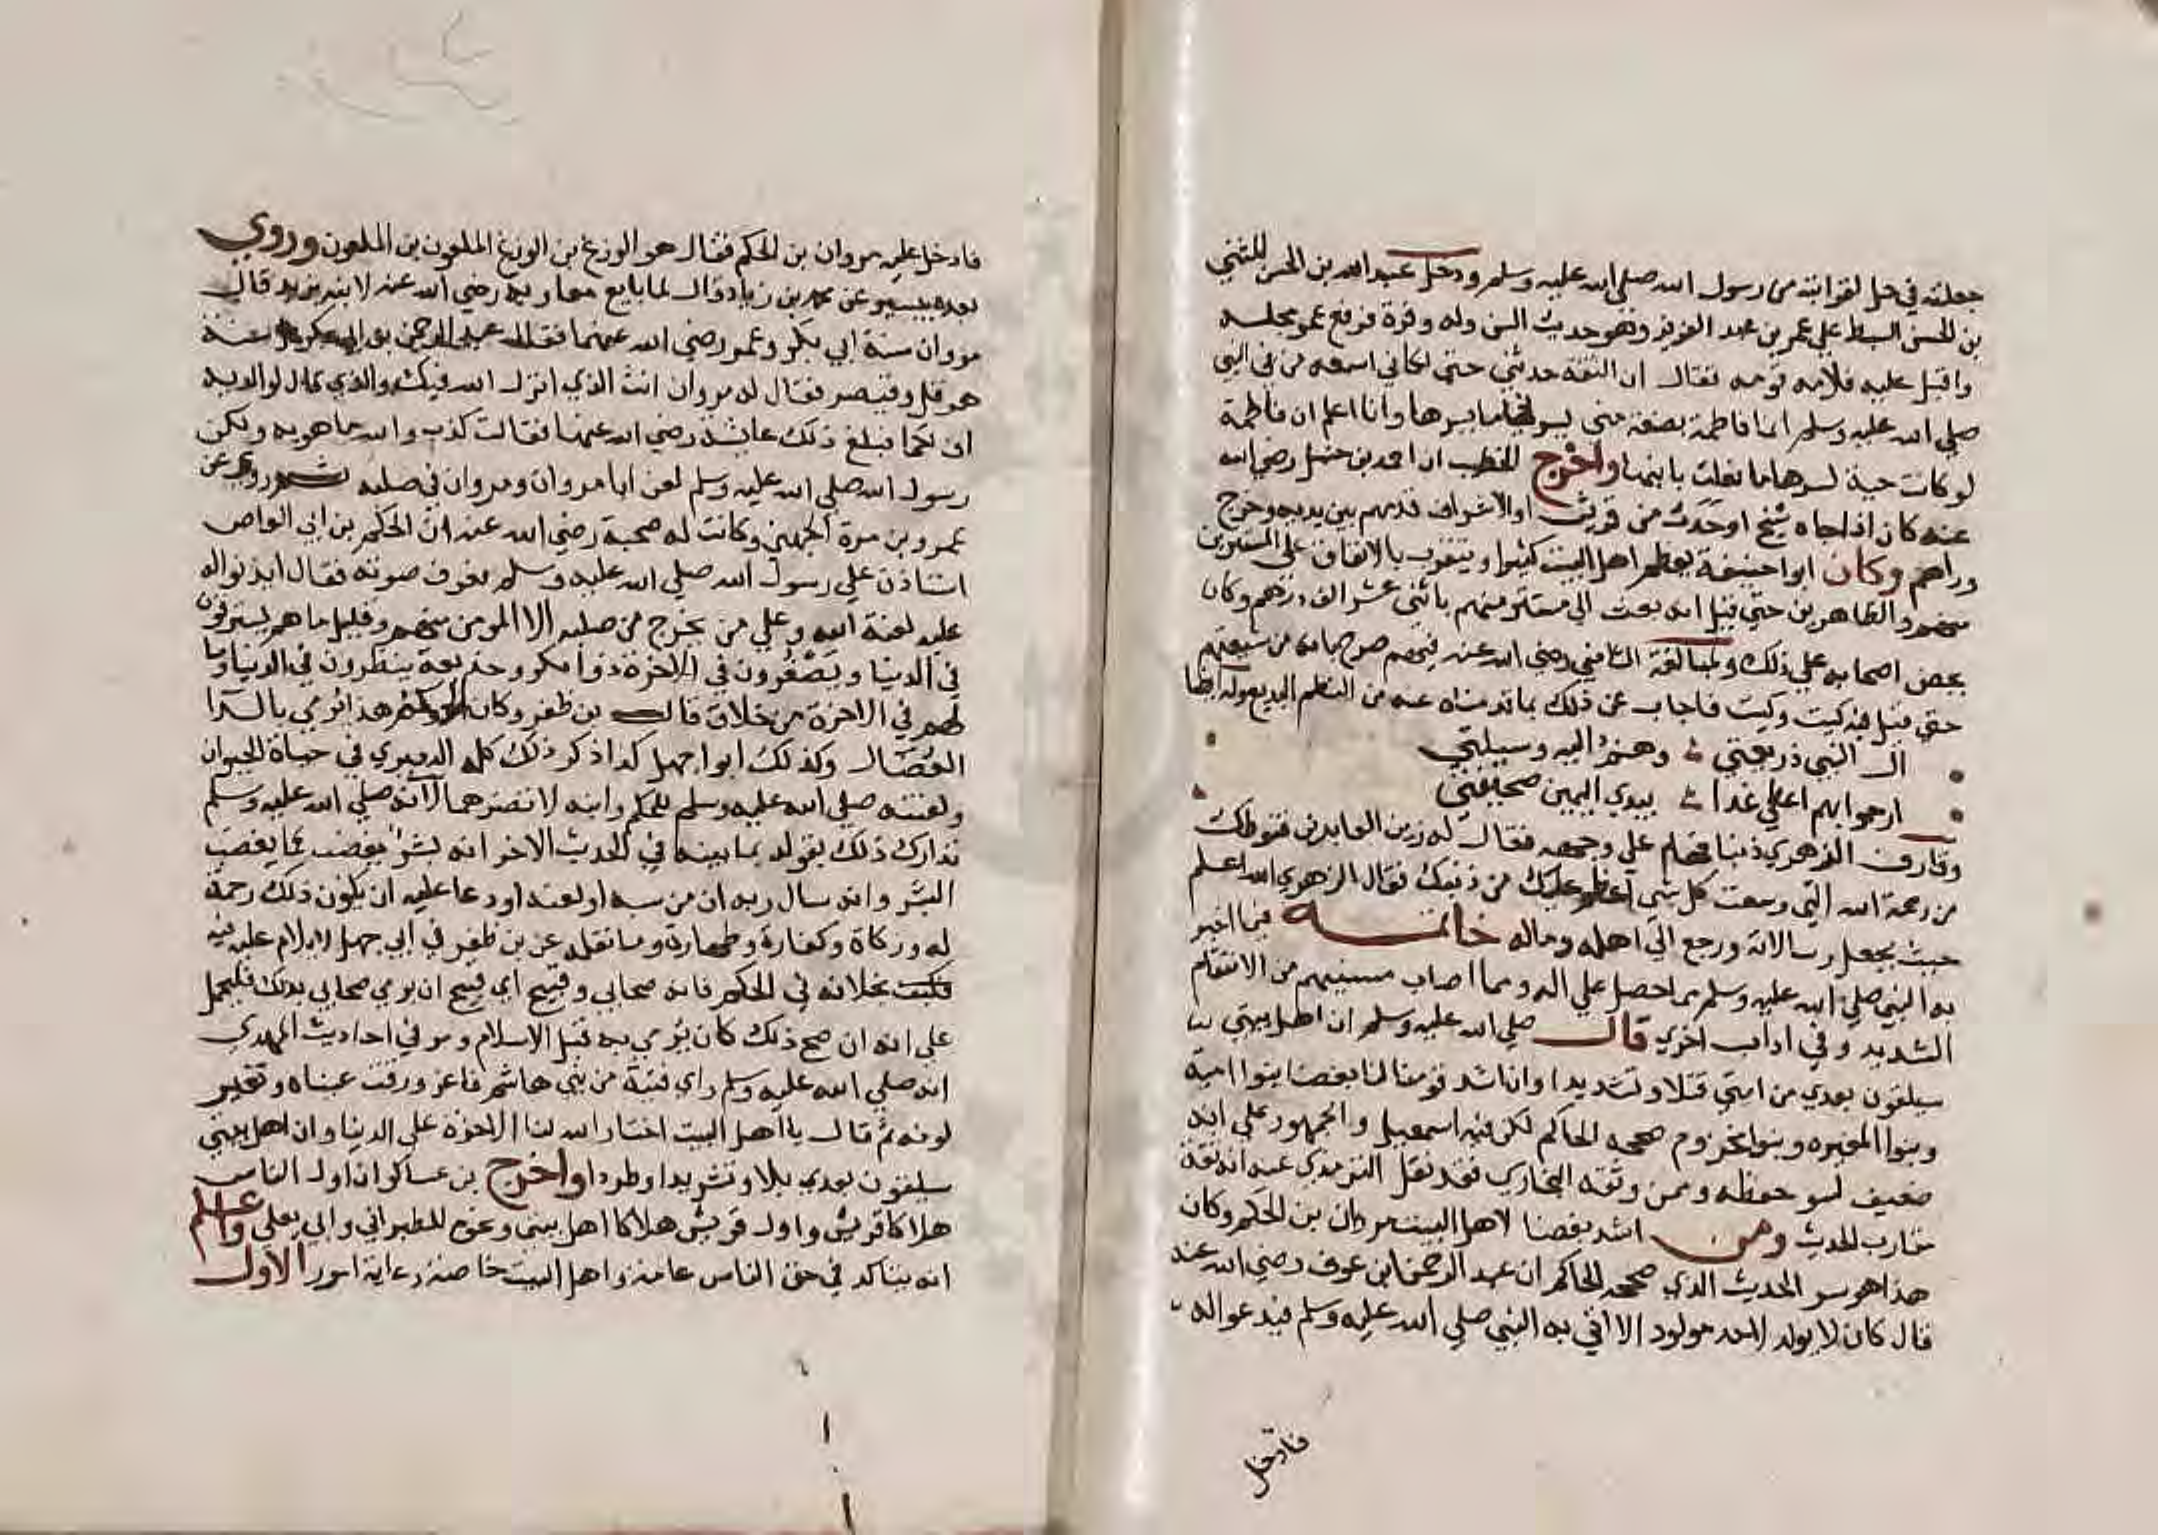 جعلته في حل لقرابته من رسول الله صلي الله عليه وسلم ودخل عبد الله بن الحسن المثني
بن الحسن السبط علي عمر بن عبد العزيز وهو حديث السن وله وفرة فرفع عمر مجلسه
واقبل عليه فلامه قومه فقال ان الثقة حدثني حتي كاني اسمعه من في النبي
صلي الله عليه وسلم انما فاطمة بضعة مني يسرني ما يسرها وانا اعلم ان فاطمة
لو كانت حية لسرها ما فعلت بابنها واخرج الخطيب ان احمد بن حنبل رضي الله
عنه كان اذا جاه شيخ او حدث من قريش او الاشراف قدمهم بين يديه وخرج
وراهم وكان ابوا حنيفة يعظم اهل البيت كثيرا ويتقرب بالانفاق علي المستترين
منهم والظاهرين حتي قيل انه بعث الي مستتر منهم باثني عشر الف درهم وكان
يحض اصحابه علي ذلك ولمبالغة الشافعي رضي الله عنه فيهم صرح بانه من شيعتهم
حتي قيل فيه كيت وكيت فاجاب عن ذلك بما قدمناه عنه من النظم البديع وله ايضا
ال النبي ذريعتي وهم اليه وسيلتي
ارجوا بهم اعطي غدا بيدي اليمين صحيفتي
وقارف الزهري ذنبا فهام علي وجهه فقال له زين العابدين قنوطك
من رحمة الله التي وسعت كل شي اعظم عليك من ذنبك فقال الزهري الله اعلم
حيث يجعل رسالاته ورجع الي اهله وماله خاتمه فيما اخبر
به النبي صلي الله عليه وسلم مما حصل علي اله ومما اصاب مسيئهم من الانتقام
الشديد وفي اداب اخري قال صلي الله عليه وسلم ان اهل بيتي
سيلقون بعدي من امتي قتلا وتشديدا وان اشد قومنا لنا بغضا بنوا امية
وبنوا المغيره وبنوا مخزوم صححه الحاكم لكن فيه اسمعيل والجمهور علي انه
ضعيف لسو حفظه وممن وثقه البخاري فقد نقل الترمذي عنه انه ثقة
مقارب الحديث ومن اشد بغضا لاهل البيت مروان بن الحكم وكان
هذا هو سر الحديث الذي صححه الحاكم ان عبد الرحمن بن عوف رضي الله عنه
قال كان لا يولد لاحد مولود الا اتي به النبي صلي الله عليه وسلم فيدعوا له
فادخل
فادخل عليه مروان بن الحكم فقال هو الوزغ بن الوزغ الملعون بن الملعون وروي
بعده بيسير عن محمد بن زياد قال لما بايع معاويه رضي الله عنه لابنه يزيد قال
مروان سنة ابي بكر وعمر رضي الله عنهما فقال عبد الرحمن بن ابي بكر سنة
هرقل وقيصر فقال له مروان انت الذي انزل الله فيك والذي قال لوالديه
اف لكما فبلغ ذلك عايشه رضي الله عنها فقالت كذب والله ما هو به ولكن
رسول الله صلي الله عليه وسلم لعن ابا مروان ومروان في صلبه ثم روي عن
عمرو بن مرة الجهني وكانت له صحبة رضي الله عنه ان الحكم بن ابي العاص
استاذن علي رسول الله صلي الله عليه وسلم فعرف صوته فقال ايذنوا له
عليه لعنة الله وعلي من يخرج من صلبه الا المومن منهم وقليل ما هم يسترفون
في الدنيا ويصغرون في الاخرة ذوا مكر وخديعة ينظرون في الدنيا وما
لهم في الاخرة من خلاق قال بن ظفر وكان الحكم هذا يرمي بالداء
العضال وكذلك ابوا جهل كذا ذكر ذلك كله الدميري في حياة الحيوان
ولعنته صلي الله عليه وسلم للحكم وابنه لا تضرهما لانه صلي الله عليه وسلم
تدارك ذلك بقوله بما بينه في الحديث الاخر انه بشر يغضب كما يغضب
البشر وانه سال ربه ان من سبه او لعنه او دعا عليه ان يكون ذلك رحمة
له وزكاة وكفارة وطهارة وما نقله عن بن ظفر في ابي جهل لا يلام عليه فيه
بخلافه في الحكم فانه صحابي وقبيح اي قبيح ان يرمي صحابي بذلك فليحمل
علي انه ان صح ذلك كان يرمي به قبل الاسلام ومر في احاديث المهدي
انه صلي الله عليه وسلم راي فتية من بني هاشم فاغرورقت عيناه وتغير
لونه ثم قال يا اهل البيت اختار الله لنا الاخرة علي الدنيا وان اهل بيتي
سيلقون بعدي بلا وتشريدا وطردا واخرج بن عساكر ان اول الناس
هلاكا قريش واول قريش هلاكا اهل بيتي ونحوه للطبراني وابي يعلي واعلم
انه يتاكد في حق الناس عامة واهل البيت خاصة رعاية امور الاول